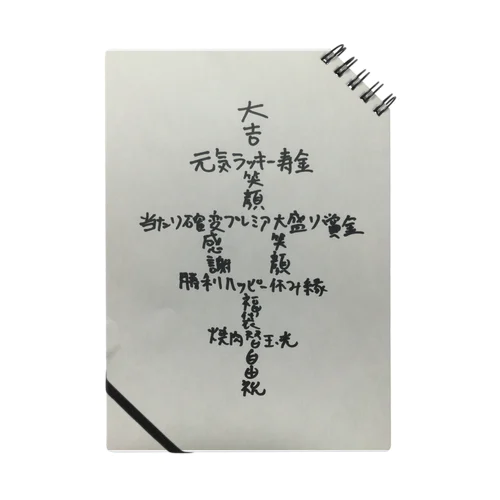 大
吉
元気ラッキー寿金
笑
顔
当たり確変プレミア大盛り賞金
感 笑
謝 顔
勝利ハッピー休み縁
福
袋
焼肉智玉光
自
由
祝